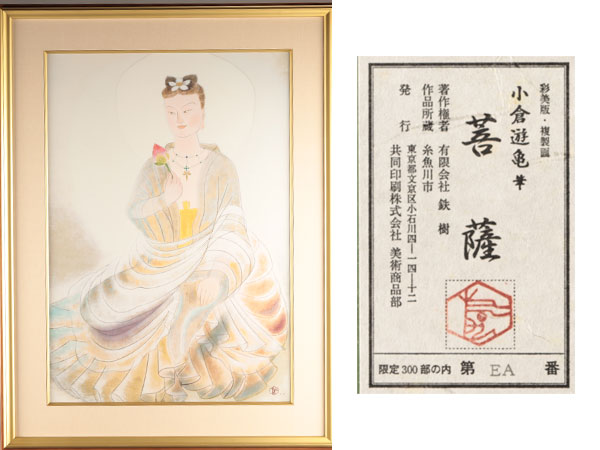 彩美版・複製画
小倉遊亀 筆
菩薩
著作権者 有限会社 鉄樹
作品所蔵 糸魚川市
発行 東京都文京区小石川四―一四―十二
共同印刷株式会社 美術商品部
限定300部の内 第 EA 番